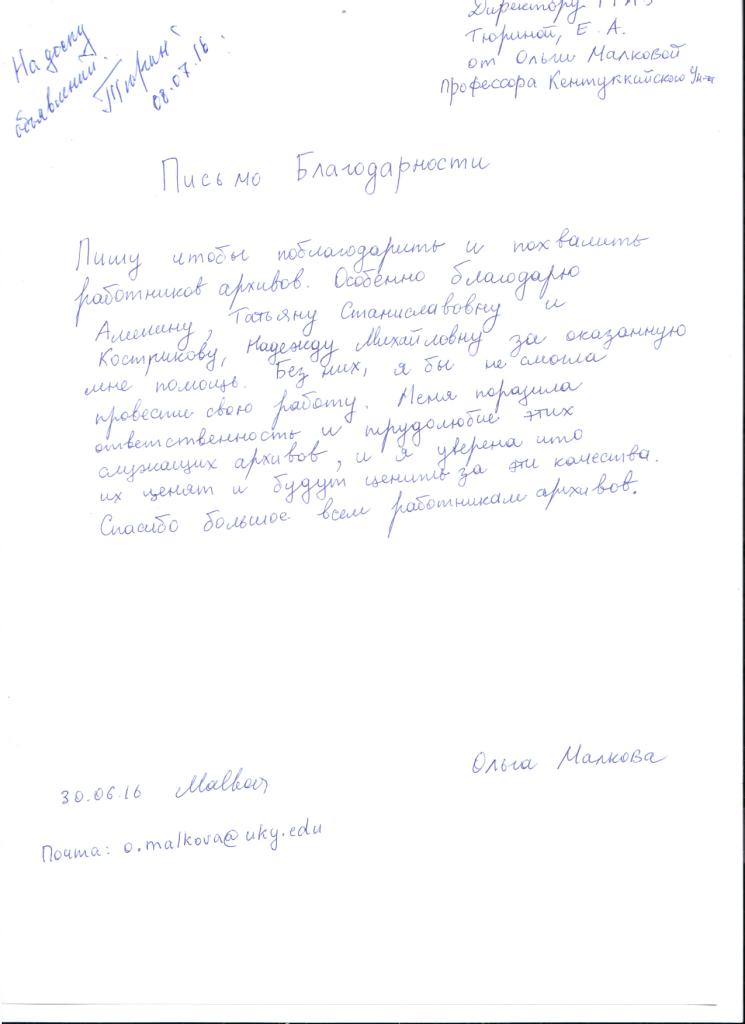 На доску
объявлений.
Тюрин
08.07.16.
Директору
Тюриной, Е. А.
от Ольги Малковой
Профессора Кентуккийского Ун-та
Письмо Благодарности
Пишу чтобы поблагодарить и похвалить
работников архивов. Особенно благодарю
Татьяну Станиславовну и
Кострикову, Надежду Михайловну за оказанную
мне помощь. Без них, я бы не смогла
провести свою работу. Меня поразила
ответственность и трудолюбие этих
служащих архивов, и я уверена что
их ценят и будут ценить за эти качества.
Спасибо большое всем работникам архивов.
Ольга Малкова
30.06.16 Malkova
Почта: o.malkova@uky.edu